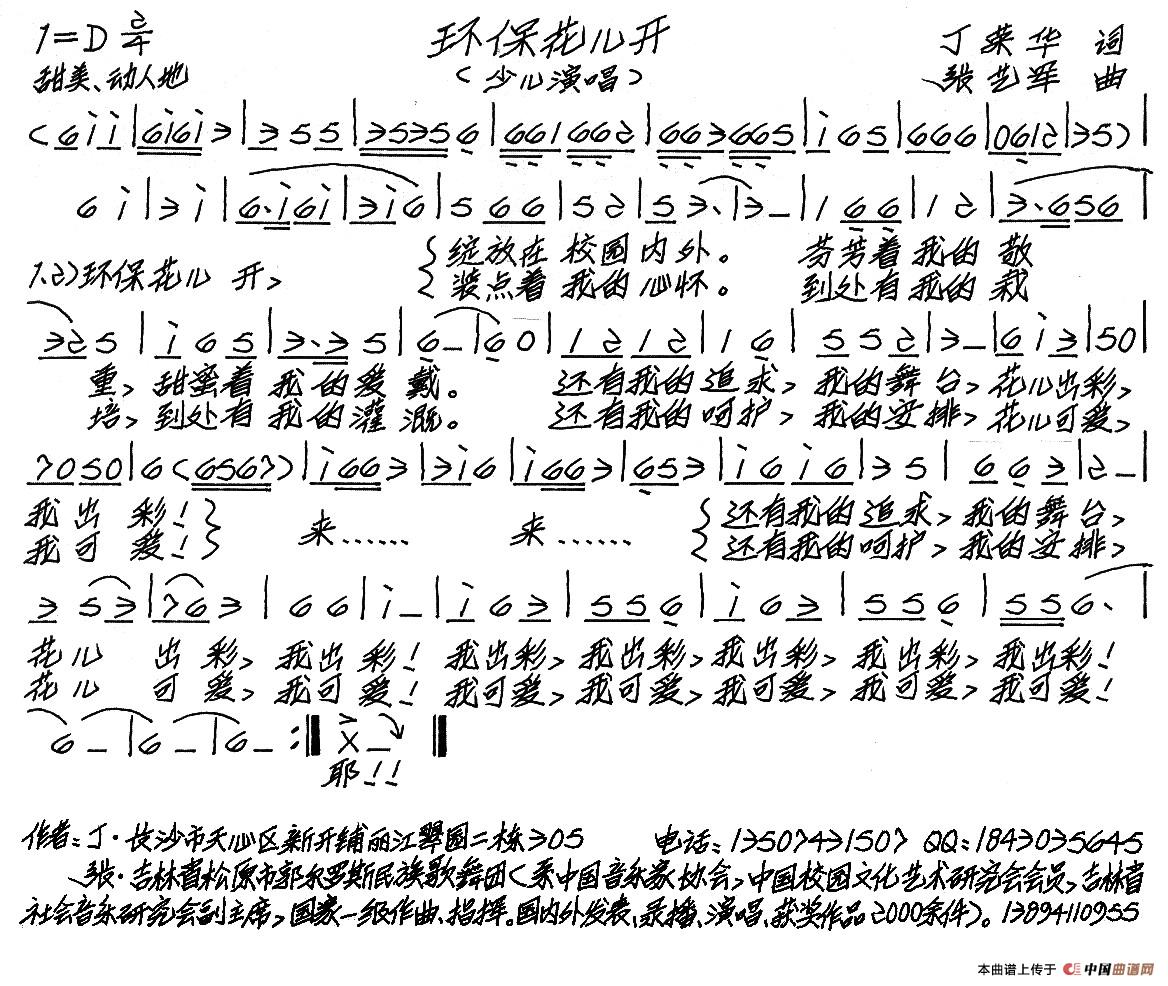 1=D 2/4 环保花儿开 丁荣华 词
甜美、动人地 (少儿演唱) 张艺军 曲
(6 i i | 6i6i 3 | 3 5 5 | 3535 6 | 661 662 | 663 665 | i 6 5 | 6 6 6 | 0612 | 3 5) |
6 i | 3 i | 6·i 6i | 3i 6 | 5 6 6 | 5 2 | 5 3· | 3 – | 1 6 6 | 1 2 | 3·6 56 |
绽放在 校园内外。 芬芳着我的 敬
1.2)环保花儿 开,
装点着 我的心怀。 到处有我的 栽
32 5 | i 6 5 | 3·3 5 | 6 – | 6 0 | 12 12 | 1 6 | 5 5 2 | 3 – | 6 i 3 | 50 |
重, 甜蜜着 我 的 爱 戴。 还有我的追求, 我的舞 台, 花儿出彩,
培, 到处有 我 的 灌 溉。 还有我的呵护, 我的安排, 花儿可爱,
70 50 | 6 (6567) | i 66 3 | 3i 6 | i 66 3 | 65 3 | i 6 i 6 | 3 5 | 6 6 3 | 2 – |
我 出 彩! 来…… 来…… 还有我的 追求, 我的舞 台,
我 可 爱! 还有我的 呵护, 我的安排,
3 5 3 | 76 3 | 6 6 | i – | i 6 3 | 5 5 6 | i 6 3 | 5 5 6 | 5 5 6· |
花儿 出 彩, 我出 彩! 我出彩, 我出彩, 我出彩, 我出彩, 我出彩!
花儿 可 爱, 我可 爱! 我可爱, 我可爱, 我可爱, 我可爱, 我可爱!
6 – | 6 – | 6 – :‖ X – ‖
耶!!
作者:丁·长沙市天心区新开铺丽江翠园二栋305 电话:13507431507 QQ:1843035645
张·吉林省松原市郭尔罗斯民族歌舞团(系中国音乐家协会,中国校园文化艺术研究会会员,吉林省
社会音乐研究会副主席,国家一级作曲、指挥。国内外发表、录播、演唱、获奖作品2000余件)。13894110955
本曲谱上传于 中国曲谱网